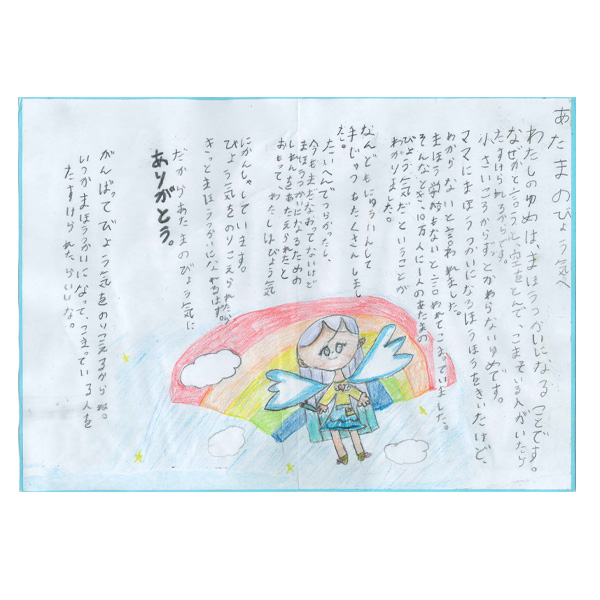 あたまのびょう気へ
わたしのゆめは、まほうつかいになることです。
なぜかと言うと、空をとんで、こまっている人がいたら
たすけられるからです。
小さいころからずっとかわらないゆめです。
ママにまほうつかいになるほうほうをきいたけど、
わからないと言われました。
まほう学校もないと言われてこまっていました。
そんなとき、10万人に一人のあたまの
びょう気だということが
わかりました。
なんどもにゅういんして
手じゅつもたくさんしまし
た。
たいへんでつらかったし、
今もまだなおってないけど
まほうつかいになるための
しれんをあたえられたと
おもって、わたしはびょう気
にかんしゃしています。
びょう気をのりこえられたら
きっとまほうつかいになれるはず。
だからあたまのびょう気に
ありがとう。
がんばってびょう気をのりこえるからね。
いつかまほうつかいになって、こまっている人を
たすけられたらいいな。